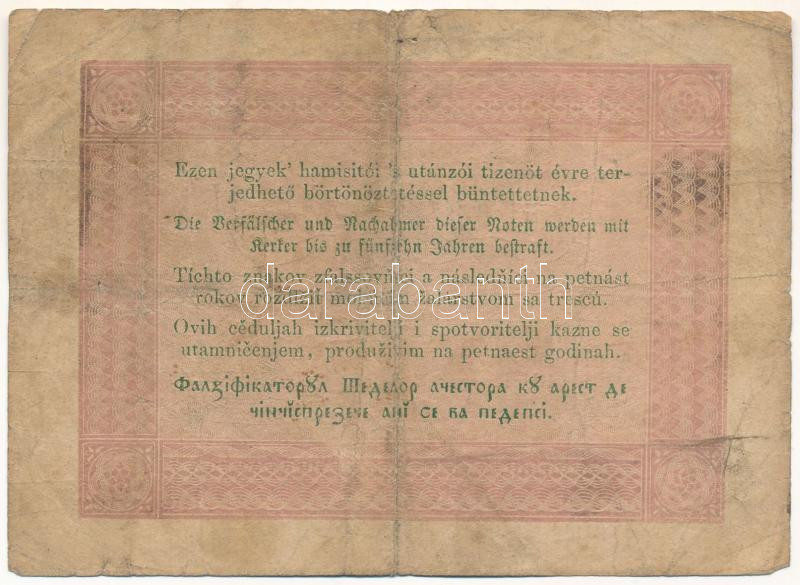 Ezen jegyek' hamisitói 's utánzói tizenöt évre ter-
jedhető börtönöztetéssel büntettetnek.
Die Verfälscher und Nachahmer dieser Noten werden mit
Kerker bis zu fünfzehn Jahren bestraft.
Tíchto znakov zfalssovňíci a následňíci na petnást
rokov žalárstvom sa tresců.
Ovih cěduljah izkrivitelji i spotvoritelji kazne se
utamničenjem, produživim na petnaest godinah.
Фалзіфікаторꙋл Шеделор ачестора кꙋ арест де
чінчіспрезече ані се ва педепсі.
darabanth